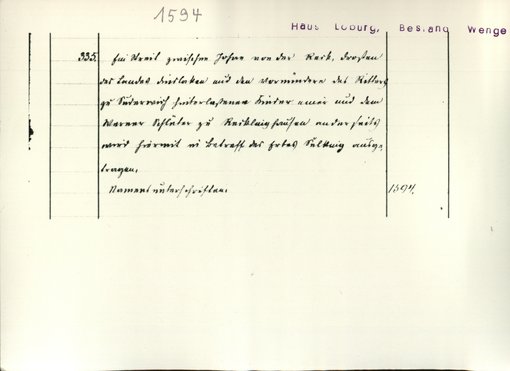 1594
Haus Loburg, Bestand Wenge
335. Ein Streit zwischen Johan von der Reck, Drosten
des Landes Dinslaken und den Vormündern des Rotgers
zu Suderwich hinterlassenen Kinder einer und dem
Werner Schlüter zu Recklinghausen anderseits
wird hiermit in Betreff des Erbes Selking ausge-
tragen.
Namensunterschriften. 1594.